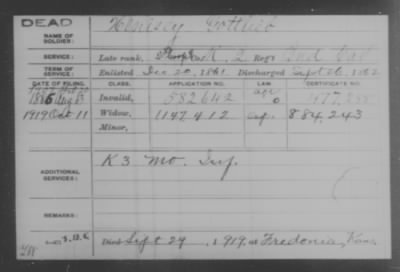 DEAD
NAME OF SOLDIER: Gottlieb
SERVICE: Late rank, Co. K, 2 Reg't Ind Cav
TERM OF SERVICE: Enlisted Dec 20, 1861. Discharged Sept 26, 1862
DATE OF FILING. CLASS. APPLICATION NO. CERTIFICATE NO.
Invalid, 582642
1919 Oct 11 Widow, 1147412 884,243
Minor,
ADDITIONAL SERVICES: K 3 Mo. Inf.
REMARKS:
Died Sept 29, 1919, at Fredonia, Kans